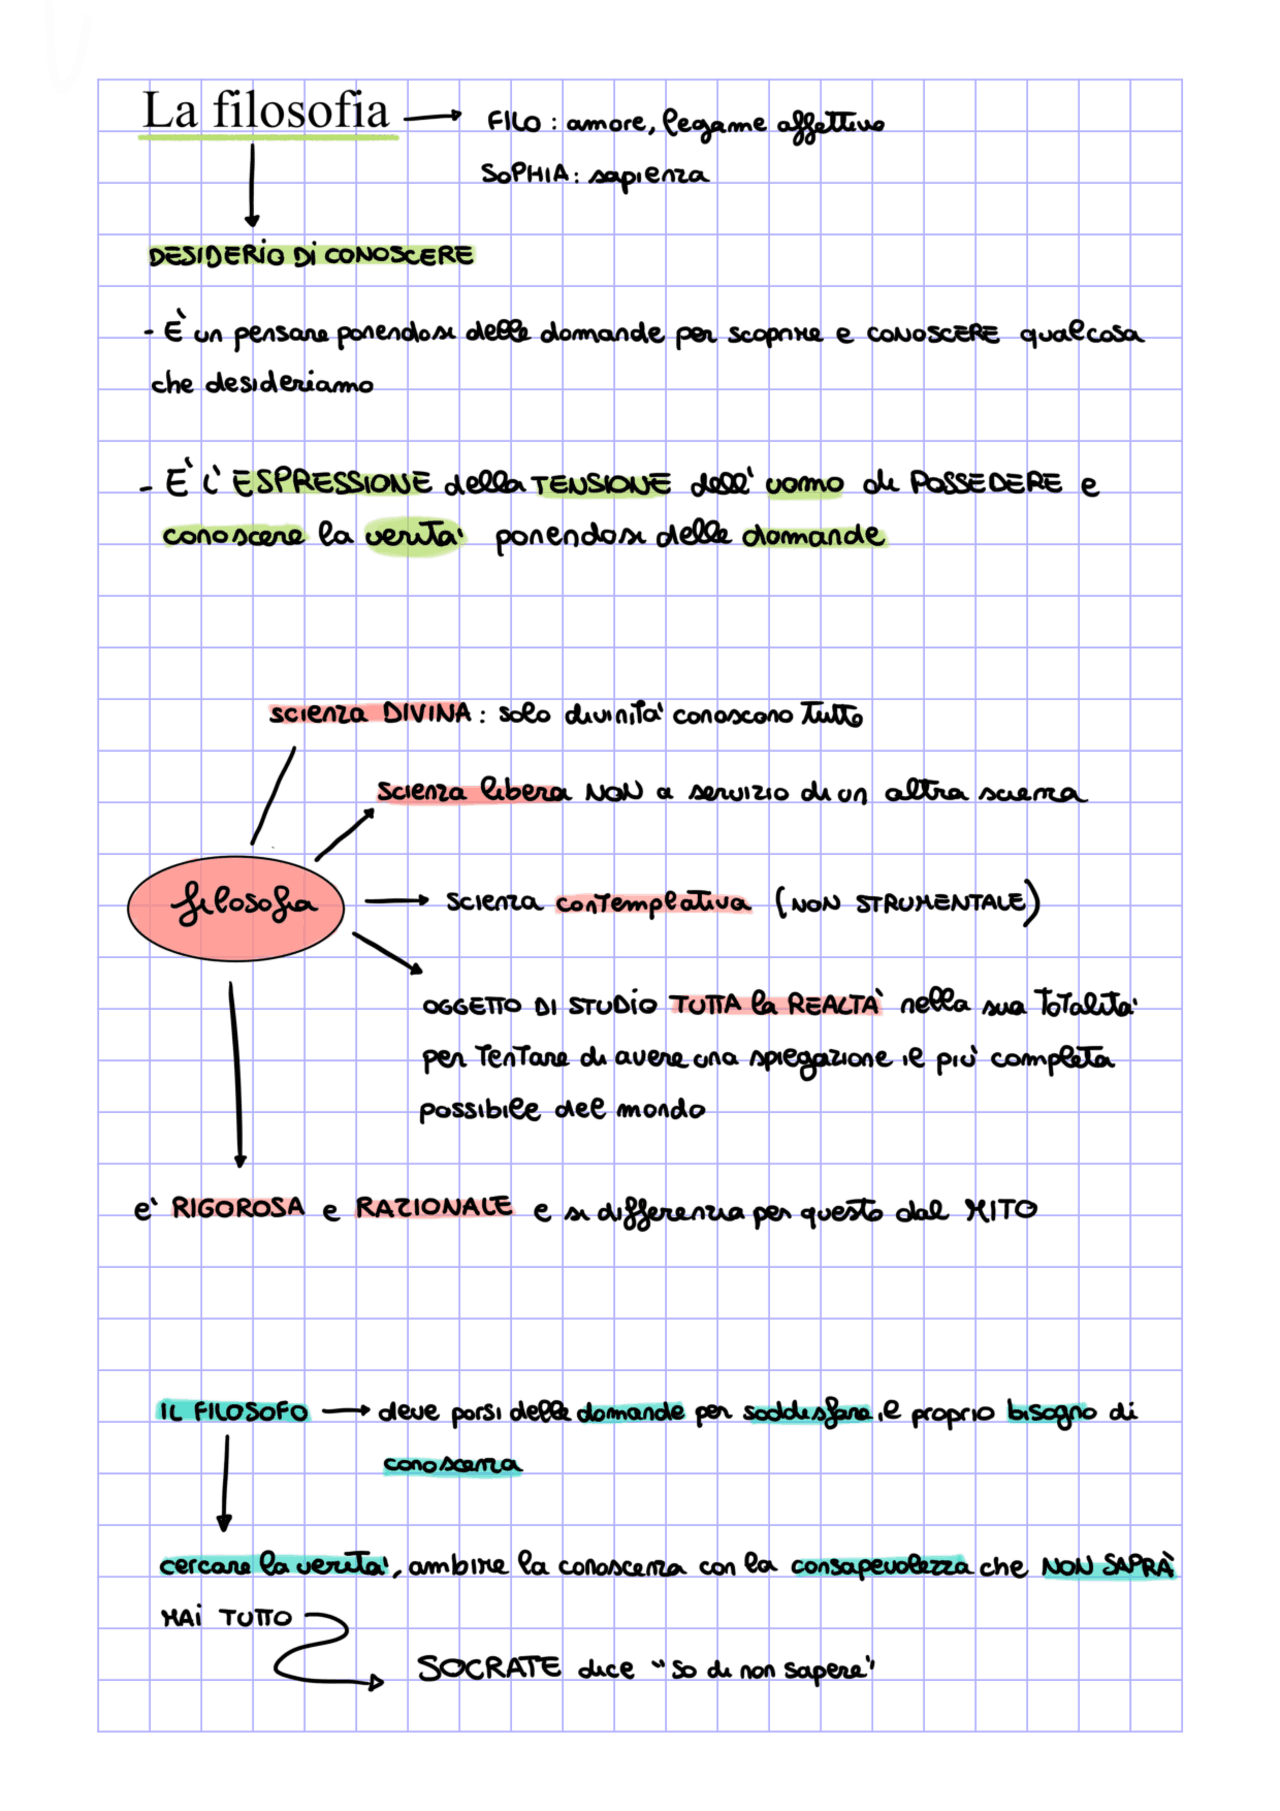 La filosofia → FILO : amore, legame affettivo
SOPHIA : sapienza
DESIDERIO DI CONOSCERE
- È un pensare ponendosi delle domande per scoprire e CONOSCERE qualcosa
che desideriamo
- E' l' ESPRESSIONE della TENSIONE dell' uomo di POSSEDERE e
conoscere la verita' ponendosi delle domande
scienza DIVINA : solo divinita' conoscono tutto
scienza libera NON a servizio di un altra scienza
filosofia → scienza contemplativa (NON STRUMENTALE)
OGGETTO DI STUDIO TUTTA la REALTÀ nella sua totalita'
per tentare di avere una spiegazione il piu' completa
possibile del mondo
e' RIGOROSA e RAZIONALE e si differenzia per questo dal MITO
IL FILOSOFO → deve porsi delle domande per soddisfare il proprio bisogno di
conoscenza
cercare la verita', ambire la conoscenza con la consapevolezza che NON SAPRÀ
MAI TUTTO
SOCRATE dice "so di non sapere"